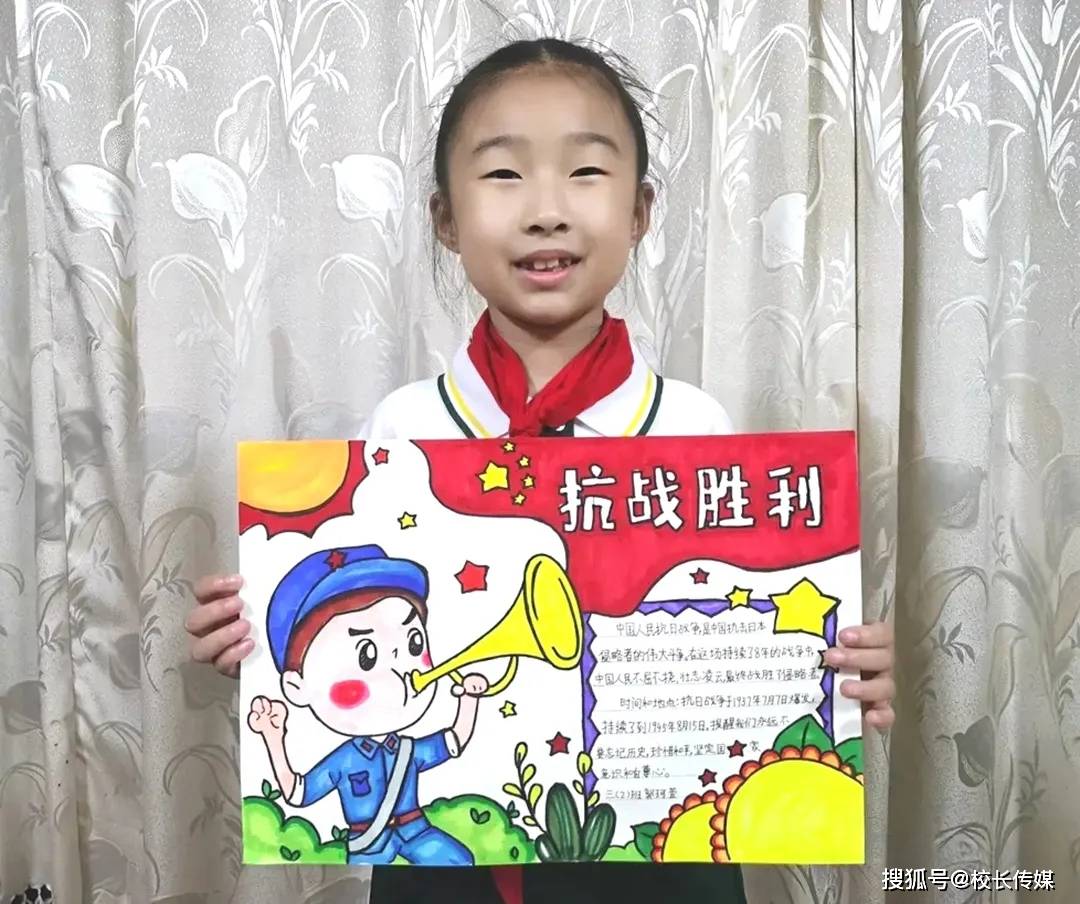 抗战胜利
中国人民抗日战争,是中国抗击日本
侵略者的伟大斗争。在这场持续了8年的战争中,
中国人民不屈不挠,壮志凌云,最终战胜了侵略者。
时间和地点:抗日战争于1937年7月7日爆发,
持续了到1945年8月15日。提醒我们永远不
要忘记历史,珍惜和平,坚定国家
意识和自尊心。
三(2)班
搜狐号@校长传媒